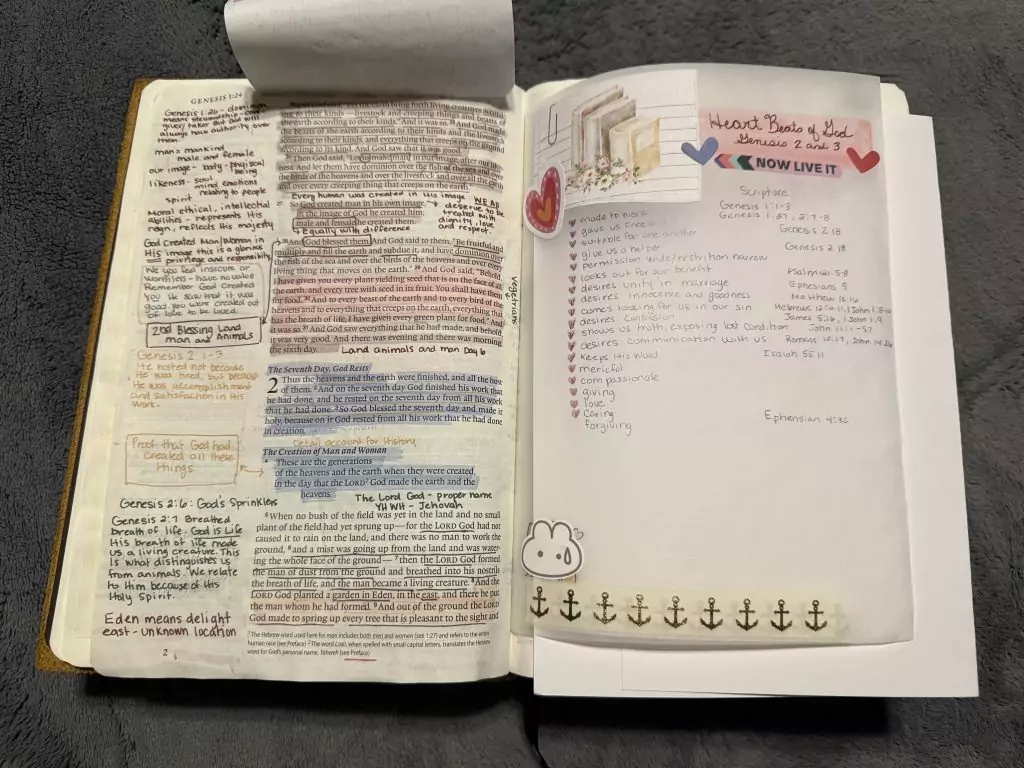 GENESIS 1:24
Genesis 1:26 - dominion
means stewardship - care
giver/taker and God will
always have authority over
them.
man = mankind
male and female
our image - body - physical
being
likeness - soul
mind emotions
spirit
relating to people
Moral ethical, intellectual
abilities - represents His
reign, reflects His majesty
God Created Man/Woman in
His image this is a glorious
privilege and responsibility
When you feel insecure or
worthless - have no value
Remember God Created
You. He saw that it was
good. You were created out
of love to be loved.
2nd Blessing Land
man and Animals
Genesis 2:1-3
He rested not because
He was tired, but because
He was accomplishment
and satisfaction in His
Work.
Proof that God had
Created all these
things.
Genesis 2:6: God's Sprinklers
Genesis 2:7 Breathed
breath of life. God is Life
His breath of life made
us a living creature. This
is what distinguishes us
from animals. We relate
to Him because of His
Holy Spirit.
Eden means delight
east - unknown location
2
"Let the earth bring forth living creatures accord-
ing to their kinds—livestock and creeping things and beasts of
the earth according to their kinds." And it was so. 25 And God made
the beasts of the earth according to their kinds and the livestock
according to their kinds, and everything that creeps on the ground
according to its kind. And God saw that it was good.
26 Then God said, "Let us make man in our image, after our like-
ness. And let them have dominion over the fish of the sea and over
the birds of the heavens and over the livestock and over all the earth
and over every creeping thing that creeps on the earth."
Every human was created in His image WE All
deserve to be
treated with
dignity, love
and respect.
27 So God created man in his own image,
in the image of God he created him;
male and female he created them.
equally with difference
28 And God blessed them. And God said to them, "Be fruitful and
multiply and fill the earth and subdue it, and have dominion over
the fish of the sea and over the birds of the heavens and over every
living thing that moves on the earth." 29 And God said, "Behold,
I have given you every plant yielding seed that is on the face of all
the earth, and every tree with seed in its fruit. You shall have them
for food. 30 And to every beast of the earth and to every bird of the
heavens and to everything that creeps on the earth, everything that
has the breath of life, I have given every green plant for food." And
it was so. 31 And God saw everything that he had made, and behold,
it was very good. And there was evening and there was morning,
the sixth day.
Land animals and man Day 6
vegetarians
The Seventh Day, God Rests
2 Thus the heavens and the earth were finished, and all the host
of them. 2 And on the seventh day God finished his work that
he had done, and he rested on the seventh day from all his work
that he had done. 3 So God blessed the seventh day and made it
holy, because on it God rested from all his work that he had done
in creation.
Detail account for History
The Creation of Man and Woman
4 These are the generations
of the heavens and the earth when they were created,
in the day that the LORD God made the earth and the
heavens.
The Lord God - proper name
YHWH - Jehovah
5 When no bush of the field was yet in the land and no small
plant of the field had yet sprung up—for the LORD God had not
caused it to rain on the land, and there was no man to work the
ground, 6 and a mist was going up from the land and was water-
ing the whole face of the ground— 7 then the LORD God formed
the man of dust from the ground and breathed into his nostrils
the breath of life, and the man became a living creature. 8 And the
LORD God planted a garden in Eden, in the east, and there he put
the man whom he had formed. 9 And out of the ground the LORD
God made to spring up every tree that is pleasant to the sight and
1 The Hebrew word used here for man includes both men and women (see 1:27) and refers to the entire
human race (see Preface) 2 The word LORD, when spelled with small capital letters, translates the Hebrew
word for God's personal name, Yahweh (see Preface)
Heart Beats of God
Genesis 2 and 3
NOW LIVE IT
Scripture
made to work Genesis 1:1-3
gave us Freewill Genesis 1:27, 2:7-8
suitable for one another Genesis 2:18
give us a helper Genesis 2:18
permission wide/restriction narrow
looks out for our benefit Psalm 121:5-8
desires unity in marriage Ephesians 5
desires innocence and goodness Matthew 10:16
comes looking for us in our sin Hebrews
desires confession James 5:16, 1 John 1:9
shows us truth, exposing lost condition John 11:1-57
desires communication with us Romans 10:17, John 14:26
keeps His Word Isaiah 55:11
merciful
compassionate
giving
love
caring
forgiving Ephesian 4:32